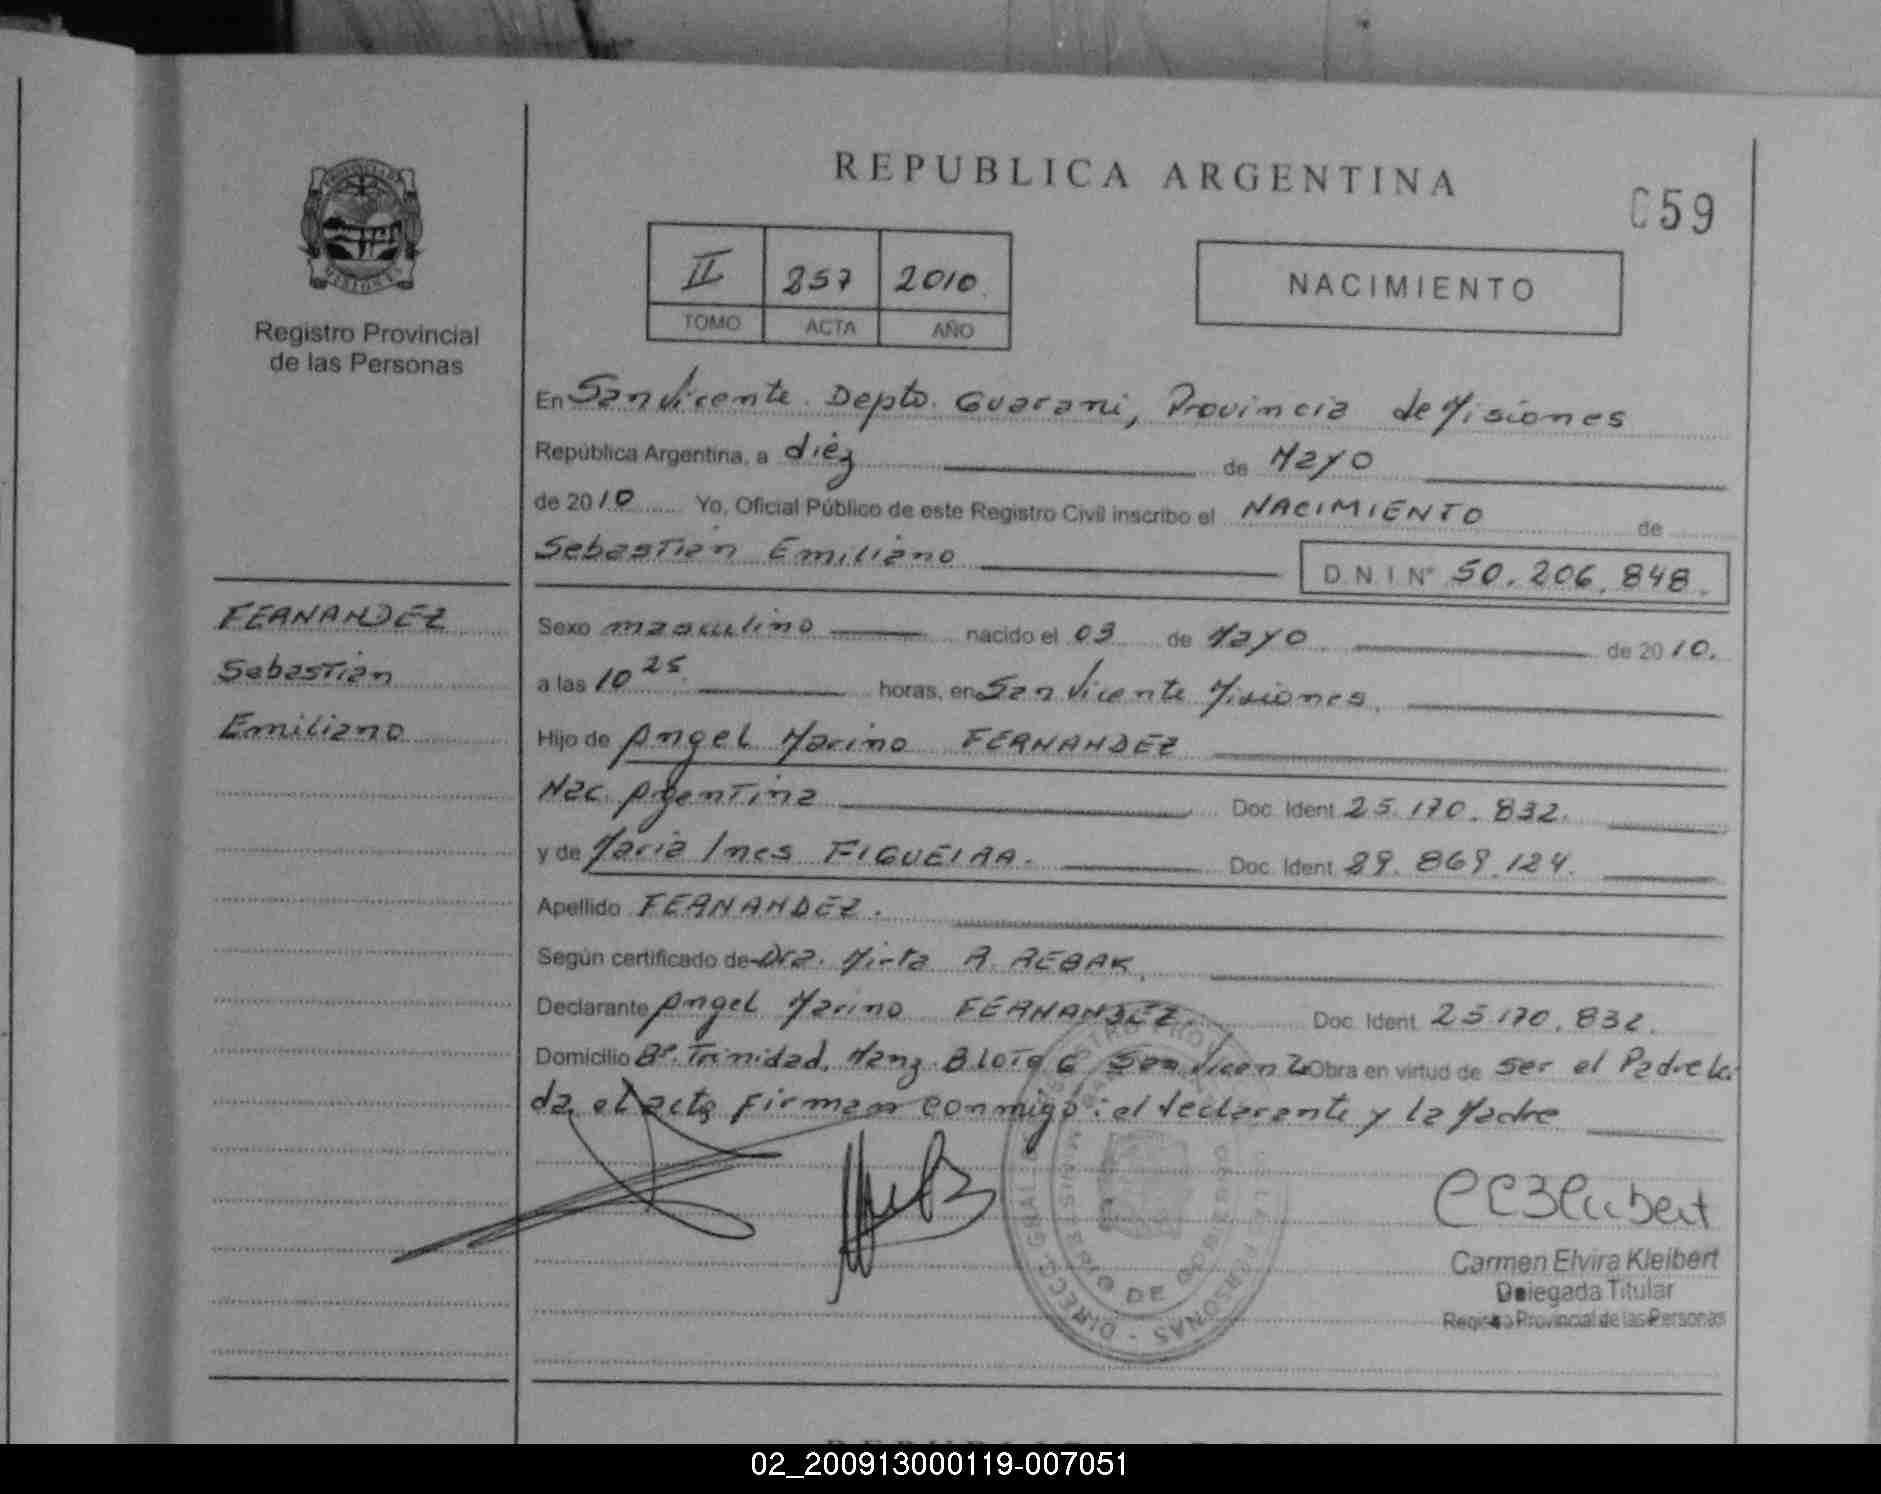 REPUBLICA ARGENTINA
059
II 257 2010
TOMO ACTA AÑO
NACIMIENTO
Registro Provincial
de las Personas
En San Vicente Depto. Guarani, Provincia de Misiones
República Argentina, a diéz de Mayo
de 2010 Yo, Oficial Público de este Registro Civil inscribo el NACIMIENTO de
Sebastián Emiliano D.N.I. Nº 50.206.848.
FERNANDEZ
Sebastián
Emiliano
Sexo masculino nacido el 03 de Mayo de 2010.
a las 10 25 horas, en San Vicente Misiones.
Hijo de Angel Marino FERNANDEZ
Nac. Argentina Doc. Ident. 25.170.832.
y de Maria Ines FIGUEIRA. Doc. Ident. 29.869.124.
Apellido FERNANDEZ.
Según certificado de Dra. Mirta R. REBAK.
Declarante Angel Marino FERNANDEZ. Doc. Ident. 25.170.832.
Domicilio Bº. Trinidad, Manz. B Lote 6 San Vicente Obra en virtud de ser el Padre Lei
da el acta firman conmigo: el declarante y la Madre
Carmen Elvira Kleibert
Delegada Titular
Registro Provincial de las Personas
MINISTERIO DE GOBIERNO
DIRECC. GRAL. PERSONAS
02_200913000119-007051